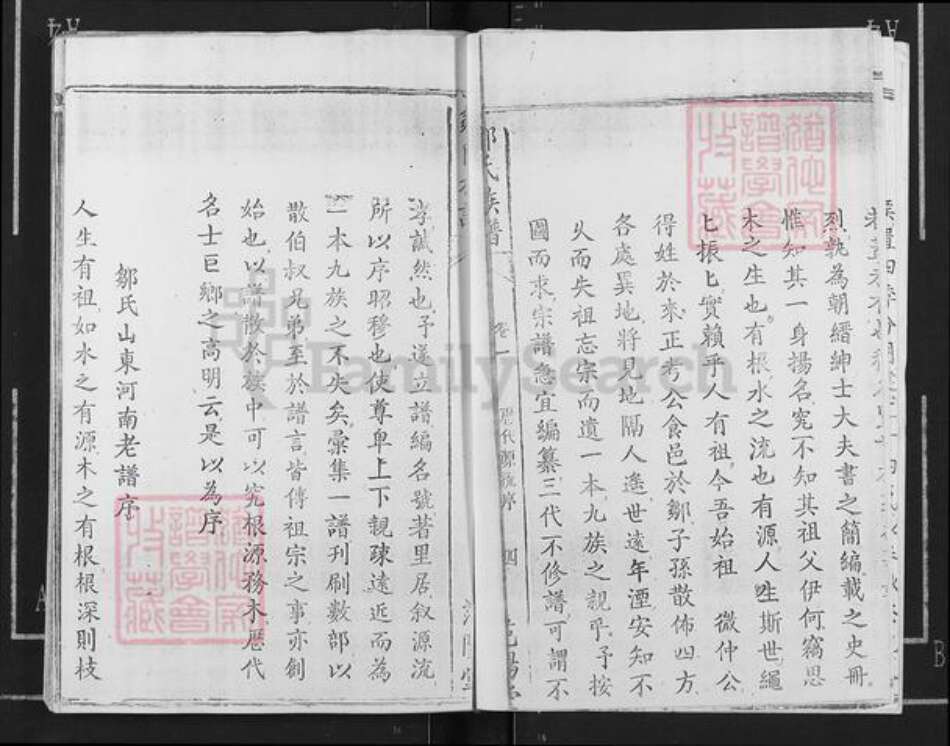 烈孰為朝縉紳士大夫書之簡編載之史冊
惟知其一身揚名究不知其祖父伊何竊思
木之生也有根水之流也有源人生斯世繩
匕振匕實賴乎人有祖今吾始祖 微仲公
得姓於來正考公食邑於鄒子孫散佈四方
各處異地將見地隔人遙世遠年湮安知不
乆而失祖忘宗而遺一本九族之親乎予按
圖而求宗譜急宜編纂三代不修譜可謂不
氏族譜 卷一 歷代源流序 四
孝誠然也予遂立譜編名號著里居叙源流
所以序昭穆也使尊卑上下親疎遠近而為
一本九族之不失矣彙集一譜刊刷數部以
散伯叔兄弟至於譜言皆傳祖宗之事亦創
始也以譜散於族中可以究根源務木歷代
名士巨鄉之高明云是以為序
鄒氏山東河南老譜序
人生有祖如水之有源木之有根根深則枝
猶他家譜學會收藏
猶他家譜學會收藏
FamilySearch